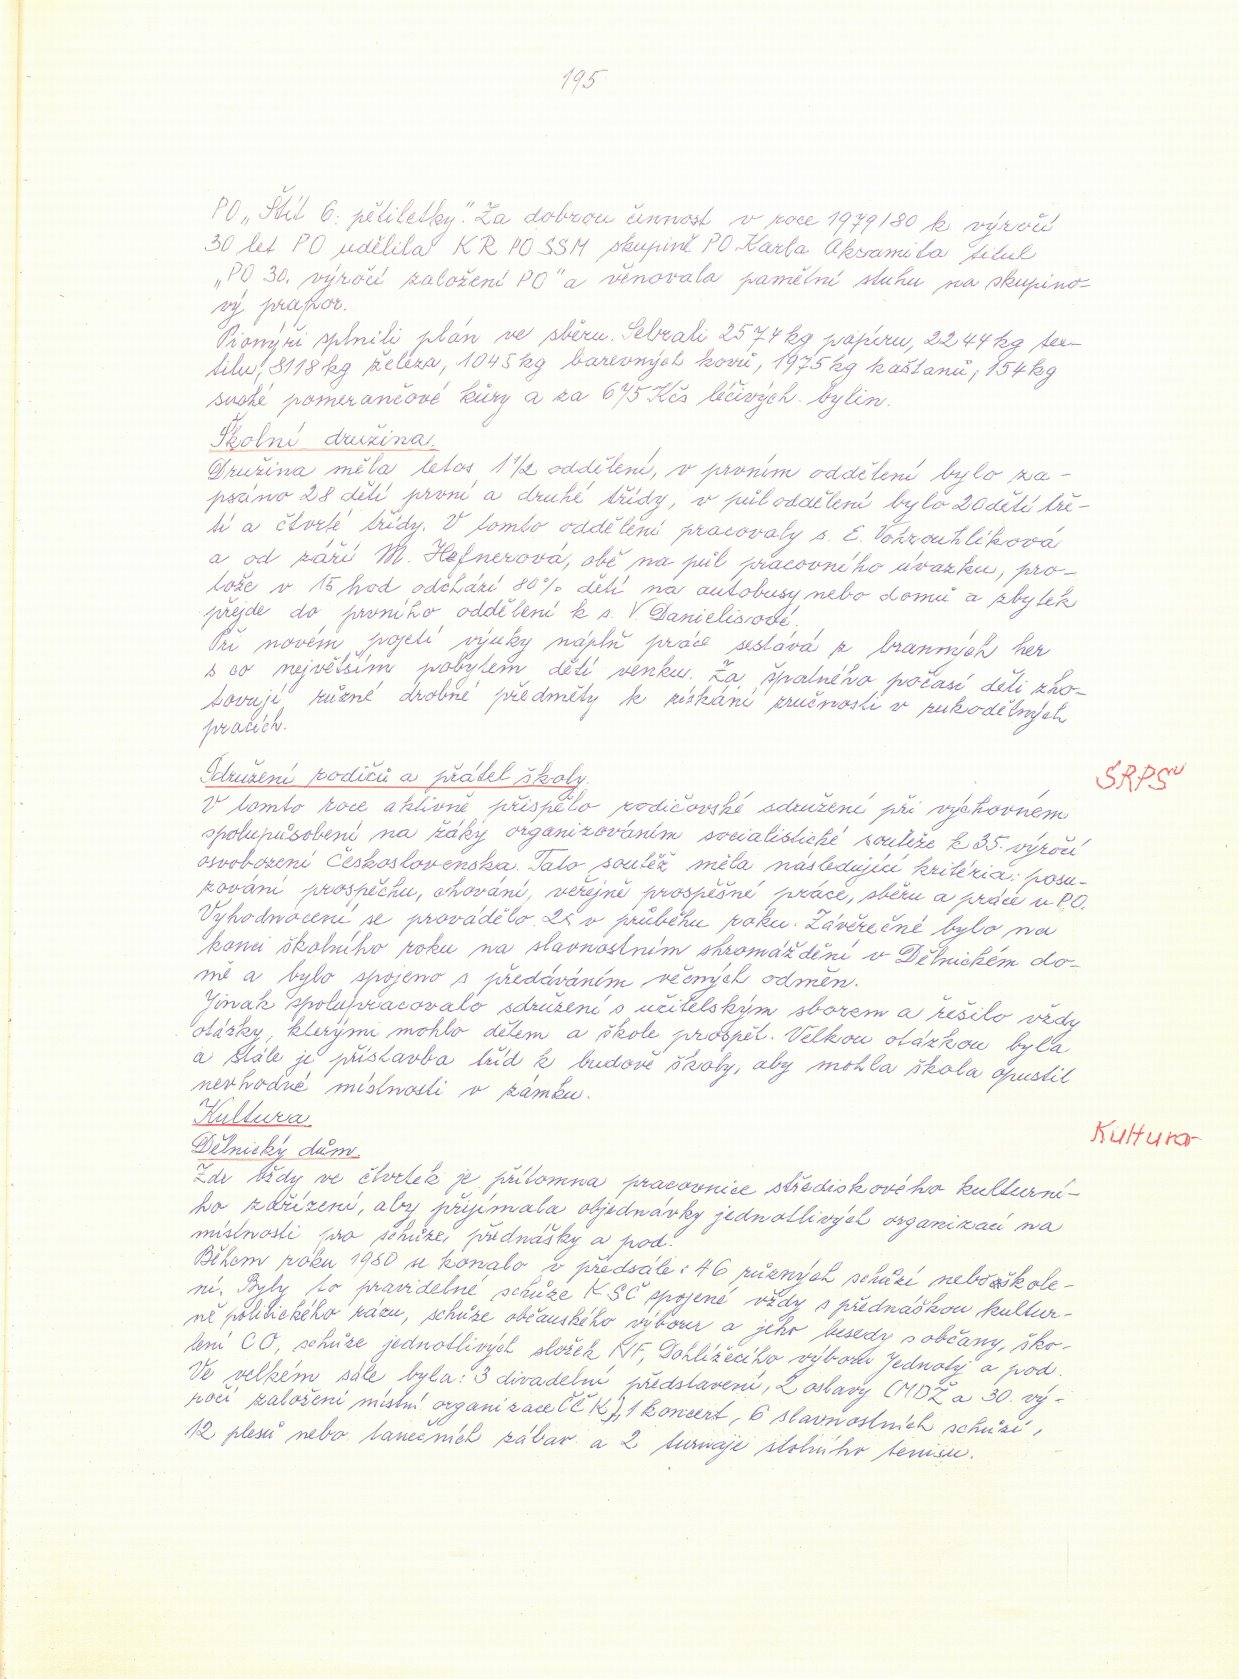 195
PO „Štít 6. pětiletky". Za dobrou činnost v roce 1979/80 k výročí
30 let PO udělila KR PO SSM skupině PO Karla Aksamita titul
„PO 30. výročí založení PO" a věnovala pamětní stuhu na skupino-
vý prapor.
Pionýři splnili plán ve sběru. Sebrali 2574 kg papíru, 2244 kg tex-
tilu, 8118 kg železa, 1045 kg barevných kovů, 1975 kg kaštanů, 154 kg
suché pomerančové kůry a za 675 Kčs léčivých bylin.
Školní družina.
Družina měla letos 1 1/2 oddělení, v prvním oddělení bylo za-
psáno 28 dětí první a druhé třídy, v půl oddělení bylo 20 dětí tře-
tí a čtvrté třídy. V tomto oddělení pracovaly s. E. Vohrouhlíková
a od září M. Hefnerová, obě na půl pracovního úvazku, pro-
tože v 15 hod odchází 80% dětí na autobusy nebo domů a zbytek
přejde do prvního oddělení k s. V. Danielisové.
Při novém pojetí výuky náplň práce sestává z branných her
s co největším pobytem dětí venku. Za špatného počasí děti zho-
tovují různé drobné předměty k získání zručnosti v rukodělných
pracích.
Sdružení rodičů a přátel školy.
SRPŠ
V tomto roce aktivně přispělo rodičovské sdružení při výchovném
spolupůsobení na žáky organizováním socialistické soutěže k 35. výročí
osvobození Československa. Tato soutěž měla následující kritéria: posu-
zování prospěchu, chování, veřejně prospěšné práce, sběru a práce v PO.
Vyhodnocení se provádělo 2x v průběhu roku. Závěrečné bylo na
konci školního roku na slavnostním shromáždění v Dělnickém do-
mě a bylo spojeno s předáváním věcných odměn.
Jinak spolupracovalo sdružení s učitelským sborem a řešilo vždy
otázky, kterými mohlo dětem a škole prospět. Velkou otázkou byla
a stále je přístavba tříd k budově školy, aby mohla škola opustit
nevhodné místnosti v zámku.
Kultura.
Kultura
Dělnický dům.
Zde vždy ve čtvrtek je přítomna pracovnice střediskového kulturní-
ho zařízení, aby přijímala objednávky jednotlivých organizací na
místnosti pro schůze, přednášky a pod.
Během roku 1980 se konalo v předsále: 46 různých schůzí nebo škole-
ní. Byly to pravidelné schůze KSČ spojené vždy s přednáškou kultur-
ně politického rázu, schůze občanského výboru a jeho besedy s občany, ško-
lení CO, schůze jednotlivých složek NF, Dohlížecího výboru Jednoty a pod.
Ve velkém sále byla: 3 divadelní představení, 2 oslavy (MDŽ a 30. vý-
ročí založení místní organizace ČČK), 1 koncert, 6 slavnostních schůzí,
12 plesů nebo tanečních zábav a 2 turnaje stolního tenisu.